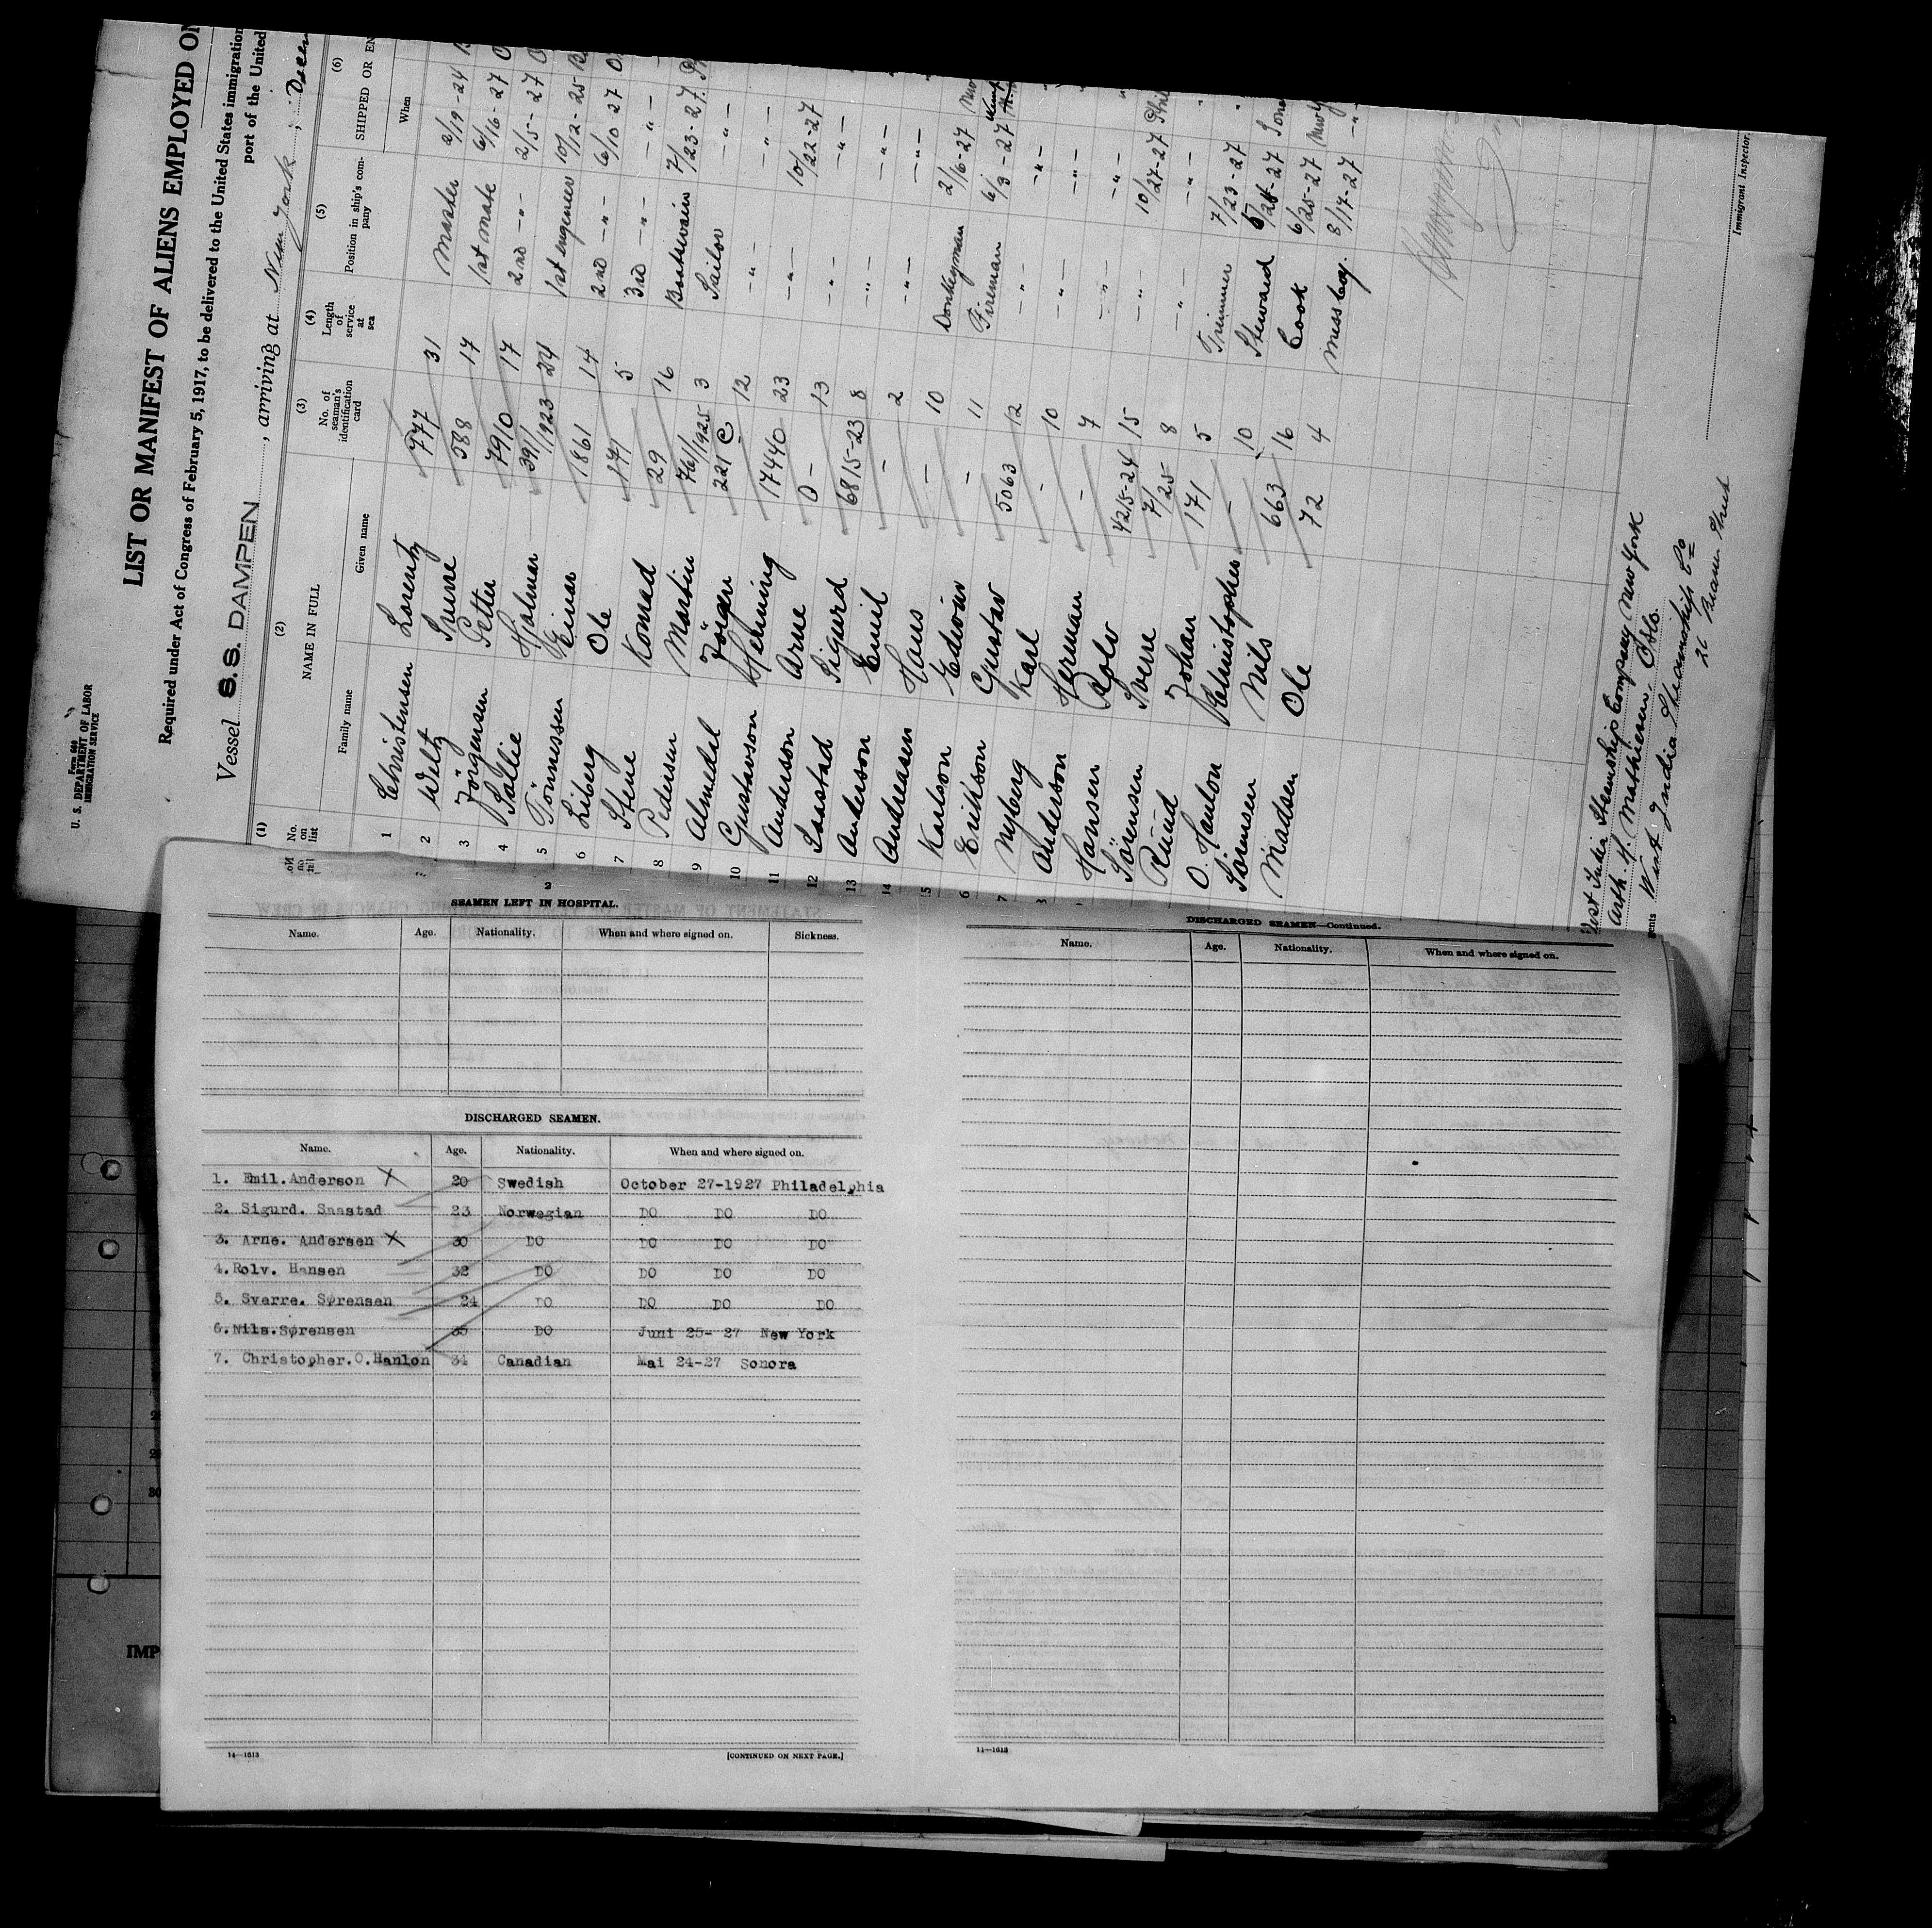 Form 680
U. S. DEPARTMENT OF LABOR
IMMIGRATION SERVICE
LIST OR MANIFEST OF ALIENS EMPLOYED ON
Required under Act of Congress of February 5, 1917, to be delivered to the United States immigration
port of the United
Vessel S.S. DAMPEN, arriving at New York,
(1) (2) (3) (4) (5) (6)
No. on list NAME IN FULL No. of seaman's identification card Length of service at sea Position in ship's company SHIPPED OR EN
Family name Given name When
1 Christensen Lorentz 777 31 Master 2/19-24
2 Weltz 588 17 1st mate 6/16-27
3 Jörgensen Petter 7910 17 2nd -"- 2/5-27
4 Sallie Hjalmar 391/1923 24 1st engeneer 10/12-25
5 Tönnessen Einar 1861 14 2nd -"- 6/10 27
6 Liberg Ole 171 5 3rd -"- -"-
7 Stene Konrad 29 16 Boatswain 7/23-27
8 Pedersen Martin 761/1925 3 Sailor -"-
9 Almedal Jörgen 221 C 12 -"- -"-
10 Gustavson Henning 17440 23 -"- 10/22-27
11 Anderson Arne 0- 13 -"- -"-
12 Saastad Sigurd 6815-23 8 -"- -"-
13 Anderson Emil - 2 -"- -"-
14 Andreasen Hans - 10 Donkeyman 2/16-27
15 Karlson Edvin - 11 Fireman 6/3-27
6 Erikson Gustav 5063 12 -"- -"-
7 Nyberg Karl - 10 -"- -"-
Anderson Herman - 7 -"- -"-
Hansen Rolv 4215-24 15 -"- 10/27-27
Sörensen Sverre 7/25 8 -"- -"-
Johan 171 5 Trimmer 7/23-27
O. Hanlon - 10 Steward 5/24-27
Sörensen Nils 663 16 Cook 6/25-27
Madsen Ole 72 4 Mess boy. 8/17-27
West India Steamship Company New York
Arth. H. Mathiesen, Oslo.
West India Steamship Co
26 Beaver Street
Immigrant Inspector.
2
SEAMEN LEFT IN HOSPITAL.
Name. Age. Nationality. When and where signed on. Sickness.
DISCHARGED SEAMEN.
Name. Age. Nationality. When and where signed on.
1. Emil.Anderson X 20 Swedish October 27-1927 Philadelphia
2. Sigurd. Saastad 23 Norwegian DO DO DO
3. Arne. Andersen X 30 DO DO DO DO
4.Rolv. Hansen 32 DO DO DO DO
5. Sverre. Sørensen 24 DO DO DO DO
6.Nils.Sørensen 35 DO Juni 25- 27 New York
7. Christopher.O.Hanlon 34 Canadian Mai 24-27 Sonora
14—1613
[CONTINUED ON NEXT PAGE.]
DISCHARGED SEAMEN—Continued.
Name. Age. Nationality. When and where signed on.
11—1613
30
IMP